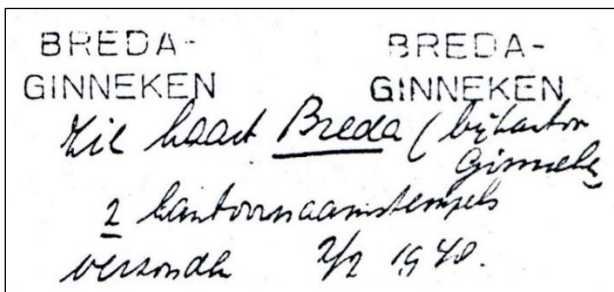 BREDA- BREDA-
GINNEKEN GINNEKEN
Zie kaart Breda (bijkantoor
Ginneken
2 kantoornaamstempels
verzonden 2/2 1940.